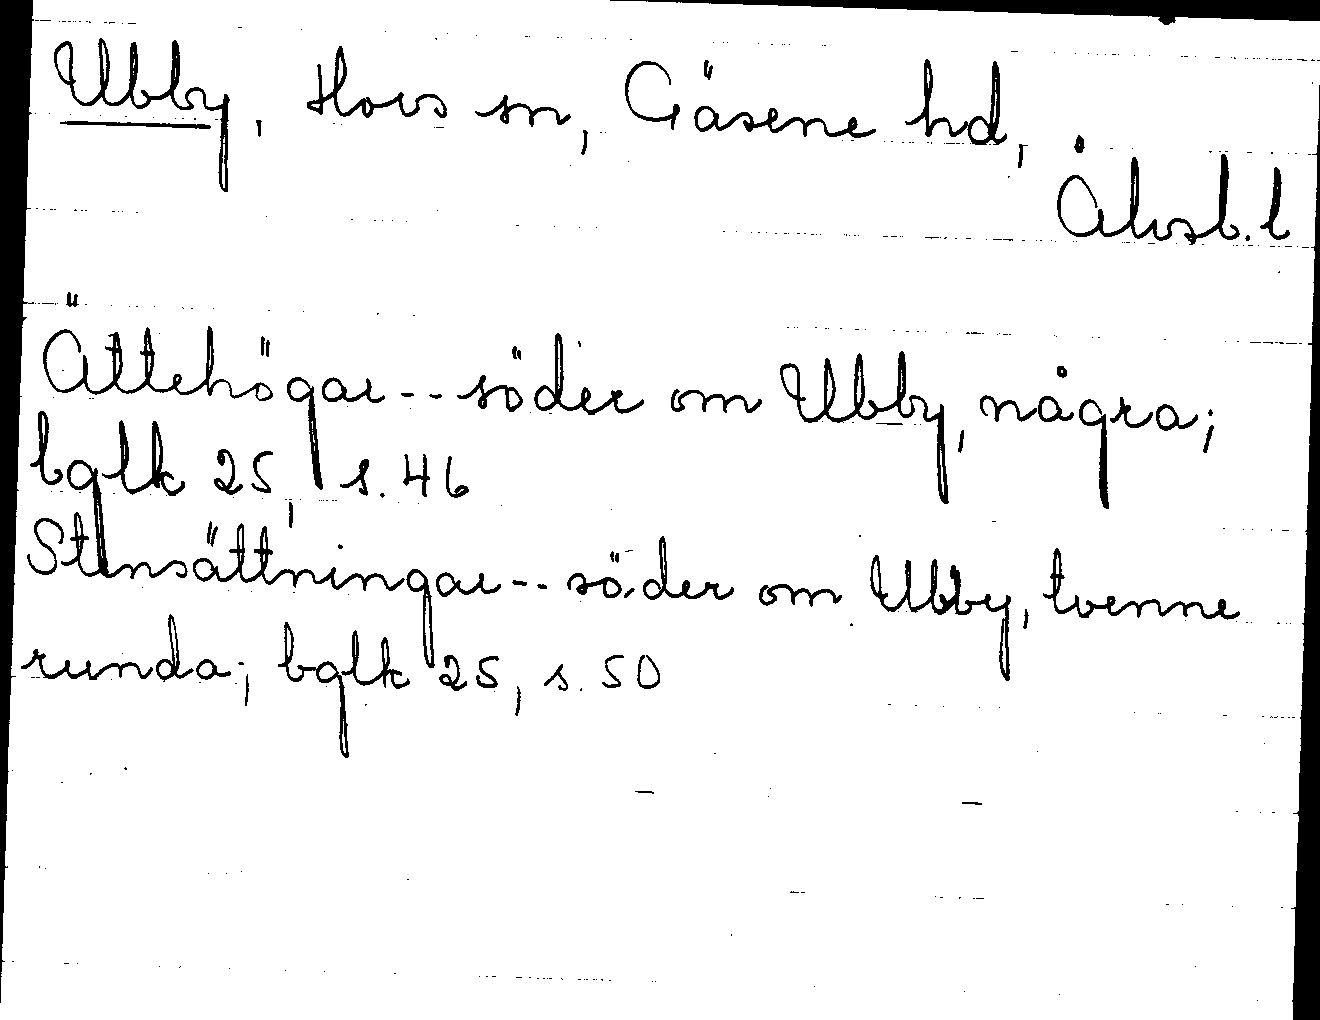 Ubby, Hovs sn, Gäsene hd,
Älvsb. l
Ättehögar -- söder om Ubby, några;
bglk 25, s. 46
Stensättningar -- söder om Ubby, tvenne
runda; bglk 25, s. 50